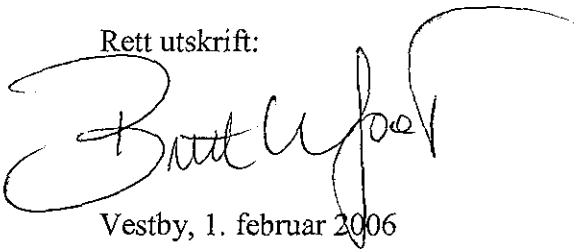 Rett utskrift:
Vestby, 1. februar 2006